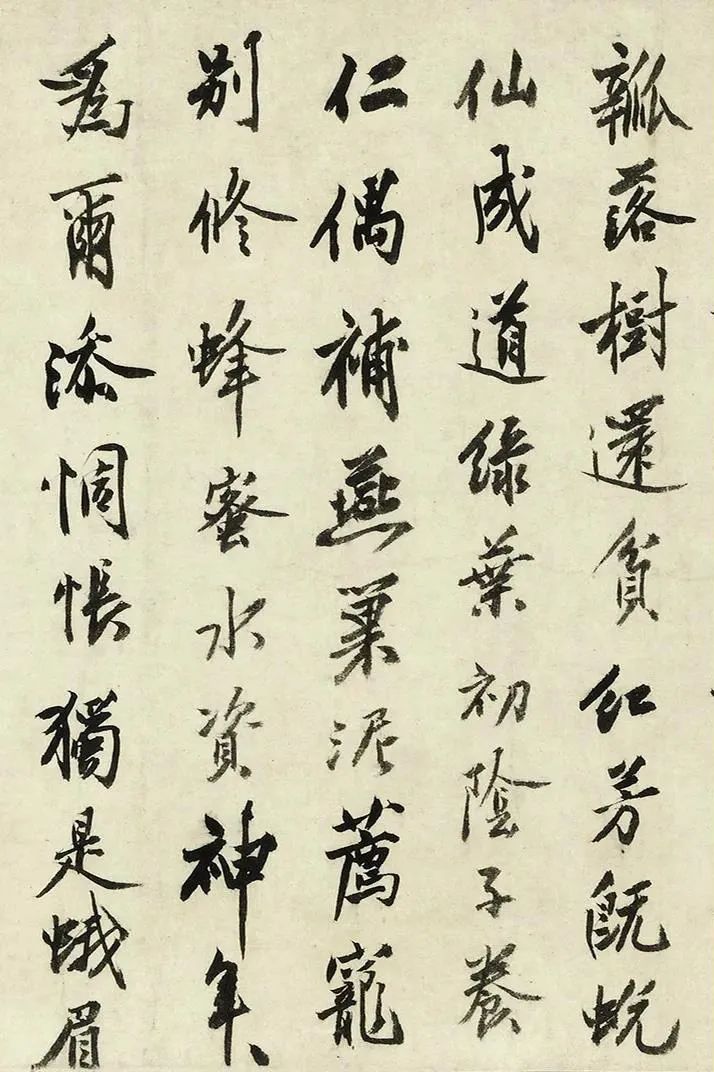 瓣落樹還貧紅芳既蛻
仙成道綠葉初陰子養
仁偶補燕巢泥薦寵
別修蜂蜜水資神年〻
為爾添惆悵獨是蛾眉